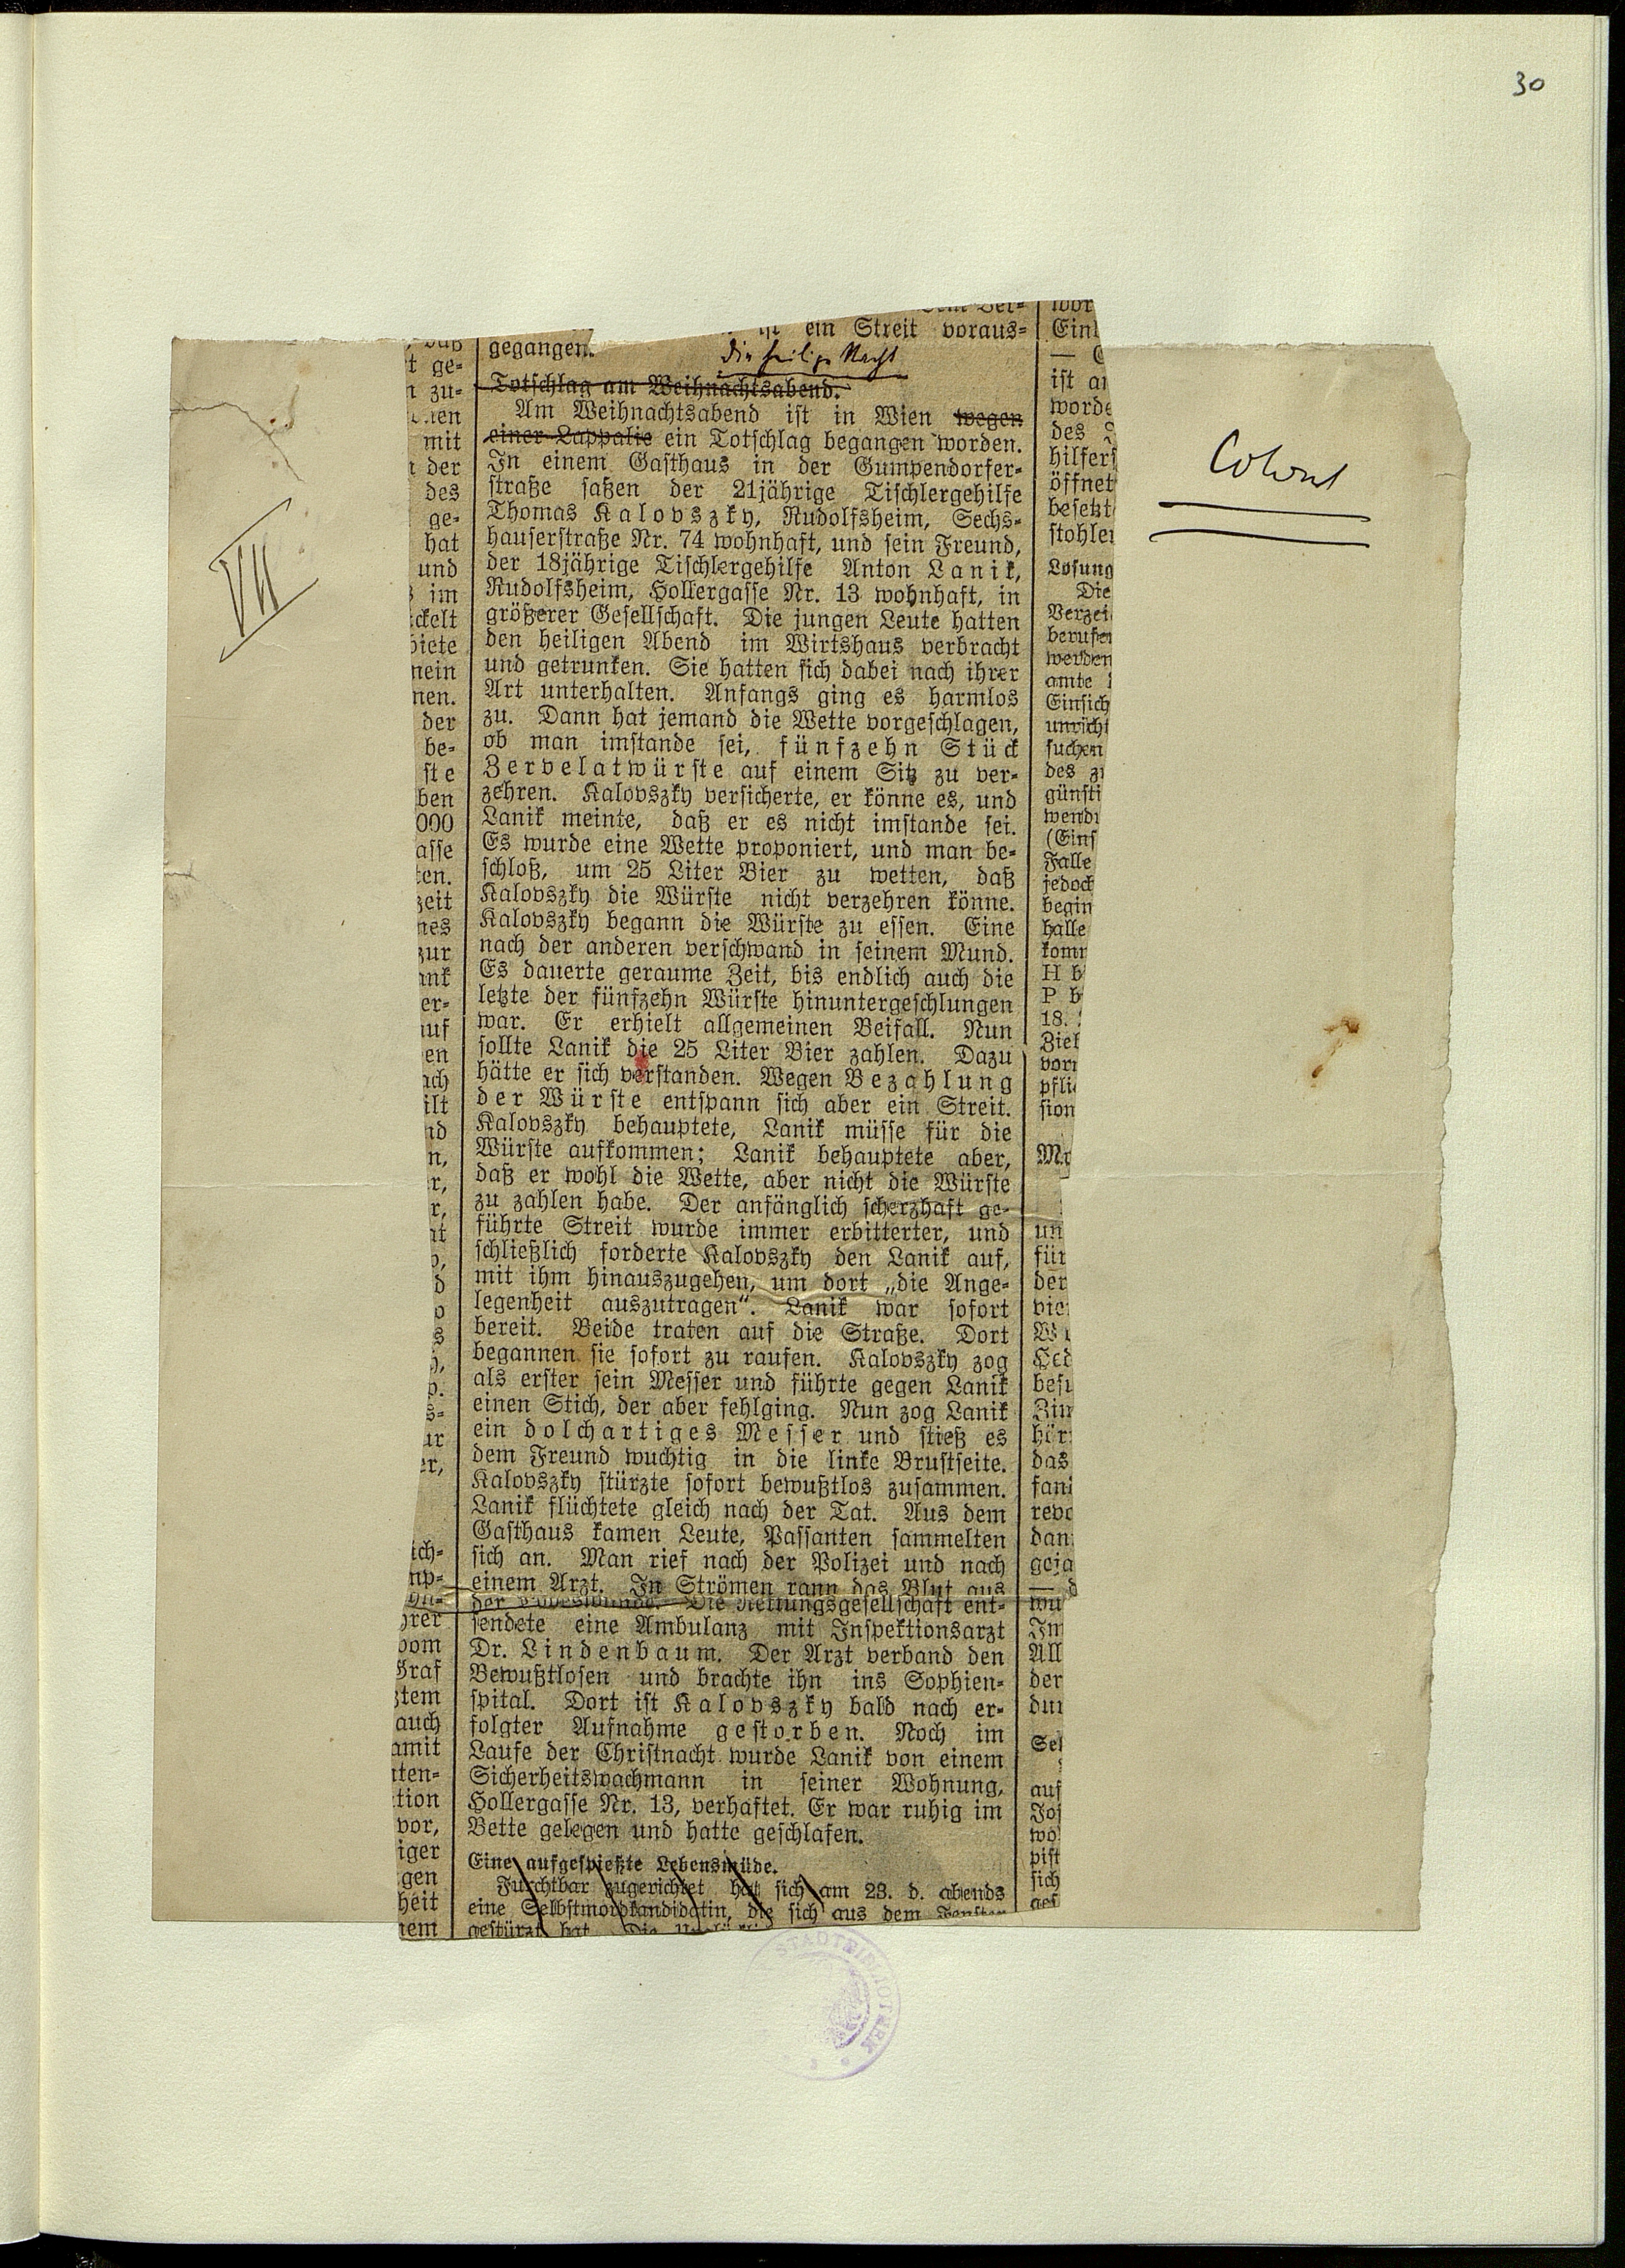 30
VII
Colonel
ist ein Streit voraus-
gegangen.
Die heilige Nacht
Totschlag am Weihnachtsabend.
Am Weihnachtsabend ist in Wien wegen
einer Lappalie ein Totschlag begangen worden.
In einem Gasthaus in der Gumpendorfer-
straße saßen der 21jährige Tischlergehilfe
Thomas Kalovszky, Rudolfsheim, Sechs-
hauserstraße Nr. 74 wohnhaft, und sein Freund,
der 18jährige Tischlergehilfe Anton Lanik,
Rudolfsheim, Hollergasse Nr. 13 wohnhaft, in
größerer Gesellschaft. Die jungen Leute hatten
den heiligen Abend im Wirtshaus verbracht
und getrunken. Sie hatten sich dabei nach ihrer
Art unterhalten. Anfangs ging es harmlos
zu. Dann hat jemand die Wette vorgeschlagen,
ob man imstande sei, fünfzehn Stück
Zervelatwürste auf einem Sitz zu ver-
zehren. Kalovszky versicherte, er könne es, und
Lanik meinte, daß er es nicht imstande sei.
Es wurde eine Wette proponiert, und man be-
schloß, um 25 Liter Bier zu wetten, daß
Kalovszky die Würste nicht verzehren könne.
Kalovszky begann die Würste zu essen. Eine
nach der anderen verschwand in seinem Mund.
Es dauerte geraume Zeit, bis endlich auch die
letzte der fünfzehn Würste hinuntergeschlungen
war. Er erhielt allgemeinen Beifall. Nun
sollte Lanik die 25 Liter Bier zahlen. Dazu
hätte er sich verstanden. Wegen Bezahlung
der Würste entspann sich aber ein Streit.
Kalovszky behauptete, Lanik müsse für die
Würste aufkommen; Lanik behauptete aber,
daß er wohl die Wette, aber nicht die Würste
zu zahlen habe. Der anfänglich scherzhaft ge-
führte Streit wurde immer erbitterter, und
schließlich forderte Kalovszky den Lanik auf,
mit ihm hinauszugehen, um dort „die Ange-
legenheit auszutragen“. Lanik war sofort
bereit. Beide traten auf die Straße. Dort
begannen sie sofort zu raufen. Kalovszky zog
als erster sein Messer und führte gegen Lanik
einen Stich, der aber fehlging. Nun zog Lanik
ein dolchartiges Messer und stieß es
dem Freund wuchtig in die linke Brustseite.
Kalovszky stürzte sofort bewußtlos zusammen.
Lanik flüchtete gleich nach der Tat. Aus dem
Gasthaus kamen Leute, Passanten sammelten
sich an. Man rief nach der Polizei und nach
einem Arzt. In Strömen rann das Blut aus
der Die Rettungsgesellschaft ent-
sendete eine Ambulanz mit Inspektionsarzt
Dr. Lindenbaum. Der Arzt verband den
Bewußtlosen und brachte ihn ins Sophien-
spital. Dort ist Kalovszky bald nach er-
folgter Aufnahme gestorben. Noch im
Laufe der Christnacht wurde Lanik von einem
Sicherheitswachmann in seiner Wohnung,
Hollergasse Nr. 13, verhaftet. Er war ruhig im
Bette gelegen und hatte geschlafen.
Eine aufgespießte Lebensmüde.
Furchtbar zugerichtet hat sich am 23. d. abends
eine Selbstmordkandidatin, die sich aus dem Fenster
gestürzt hat. Die
STADTBIBLIOTHEK